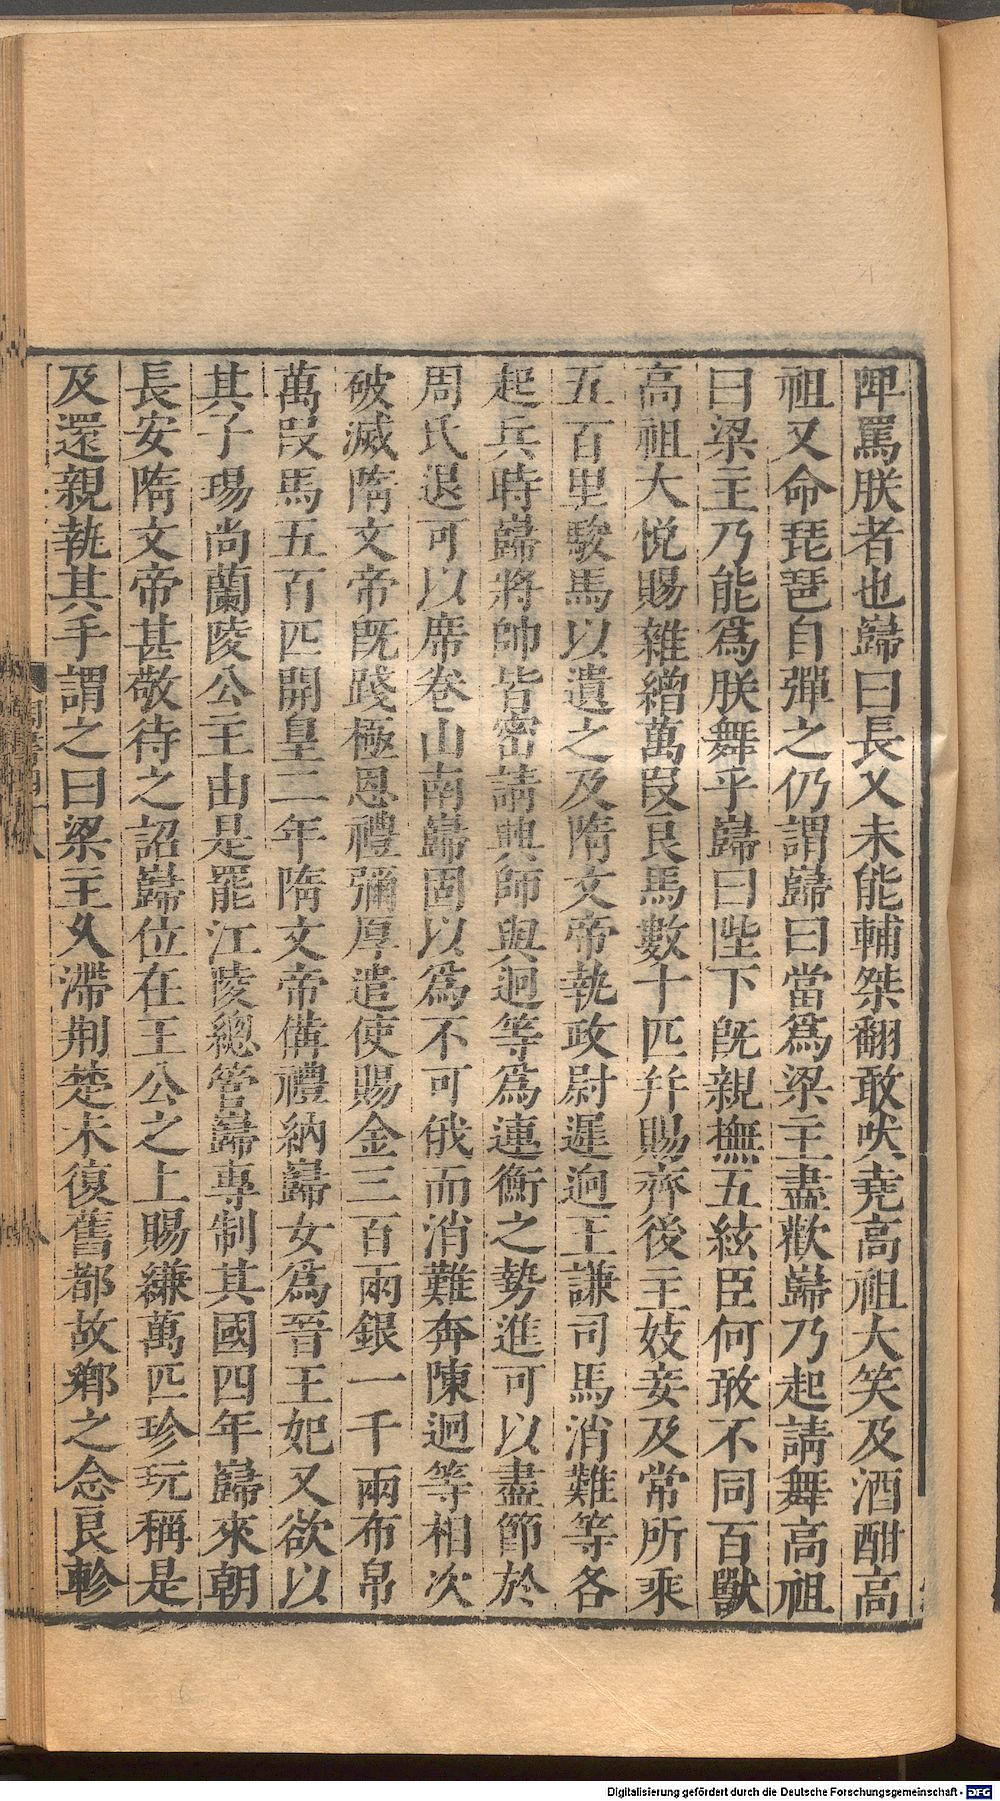 䛠罵朕者也巋曰長乂未能輔桀翻敢吠堯高祖大笑及酒酣高
祖又命琵琶自彈之仍謂巋曰當爲梁主盡歡巋乃起請舞高祖
曰梁主乃能爲朕舞乎巋曰陛下旣親撫五絃臣何敢不同百獸
高祖大悅賜雜繒萬段良馬數十匹幷賜齊後主妓妾及常所乘
五百里駿馬以遺之及隋文帝執政尉遲迥王謙司馬消難等各
起兵時巋將帥皆密請興師與迥等爲連衡之勢進可以盡節於
周氏退可以席卷山南巋固以爲不可俄而消難奔陳迥等相次
破滅隋文帝旣踐極恩禮彌厚遣使賜金三百兩銀一千兩布帛
萬段馬五百匹開皇二年隋文帝備禮納巋女爲晉王妃又欲以
其子瑒尚蘭陵公主由是罷江陵總管巋專制其國四年巋來朝
長安隋文帝甚敬待之詔巋位在王公之上賜縑萬匹珍玩稱是
及還親執其手謂之曰梁主久滯荆楚未復舊都故鄉之念良軫
Digitalisierung gefördert durch die Deutsche Forschungsgemeinschaft - DFG